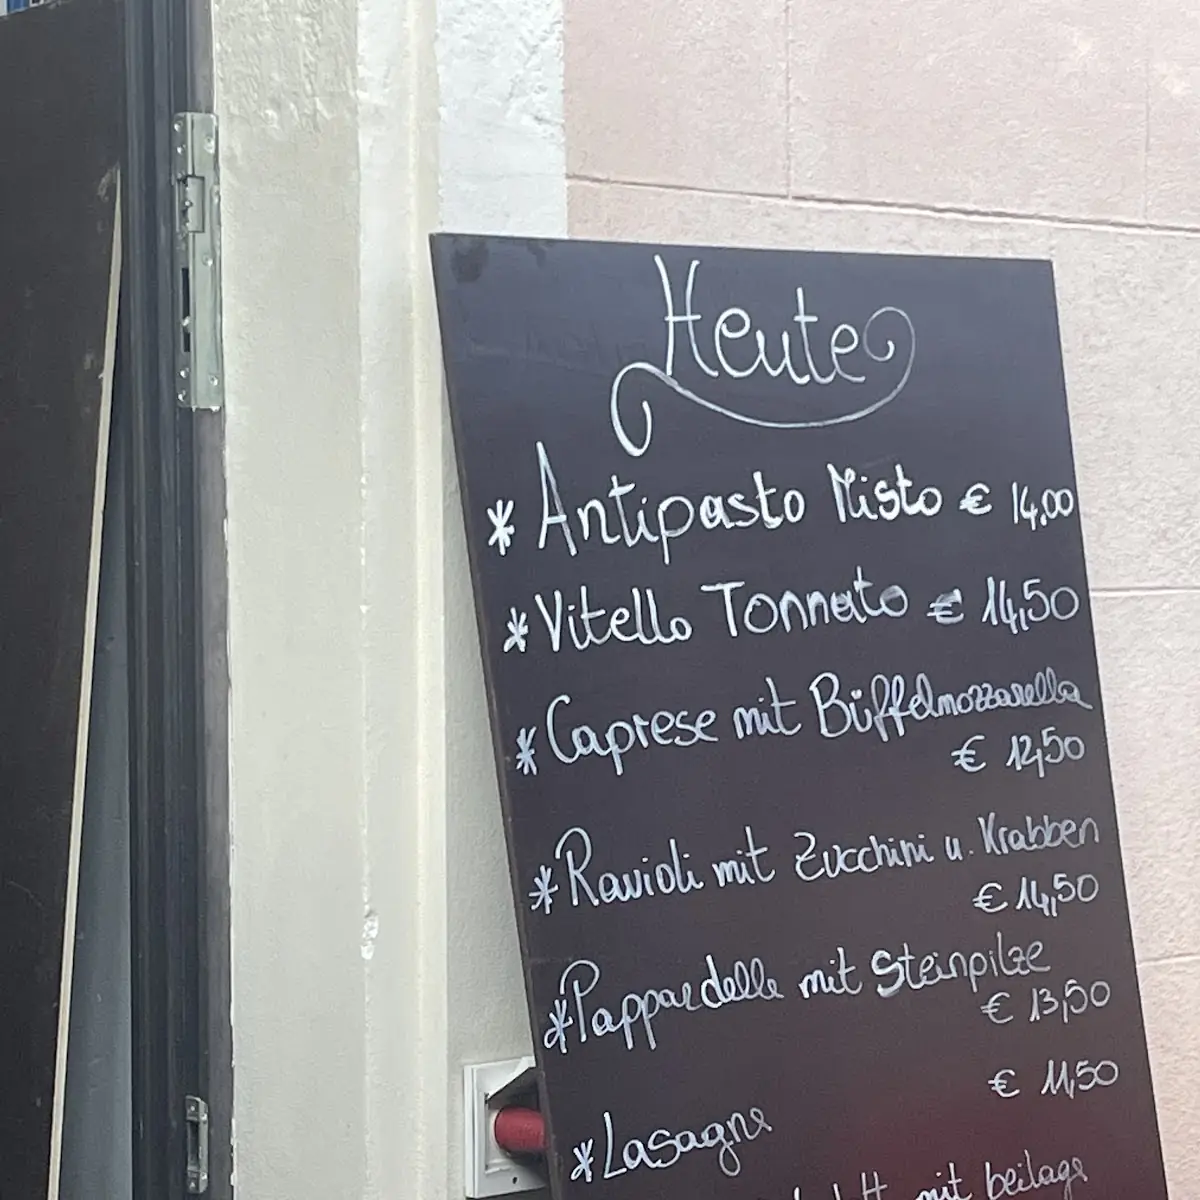 Heute
* Antipasto Misto € 14,00
* Vitello Tonnato € 14,50
* Caprese mit Büffelmozzarella
€ 12,50
* Ravioli mit Zucchini u. Krabben
€ 14,50
* Pappardelle mit Steinpilze
€ 13,50
€ 11,50
* Lasagne
mit beilage